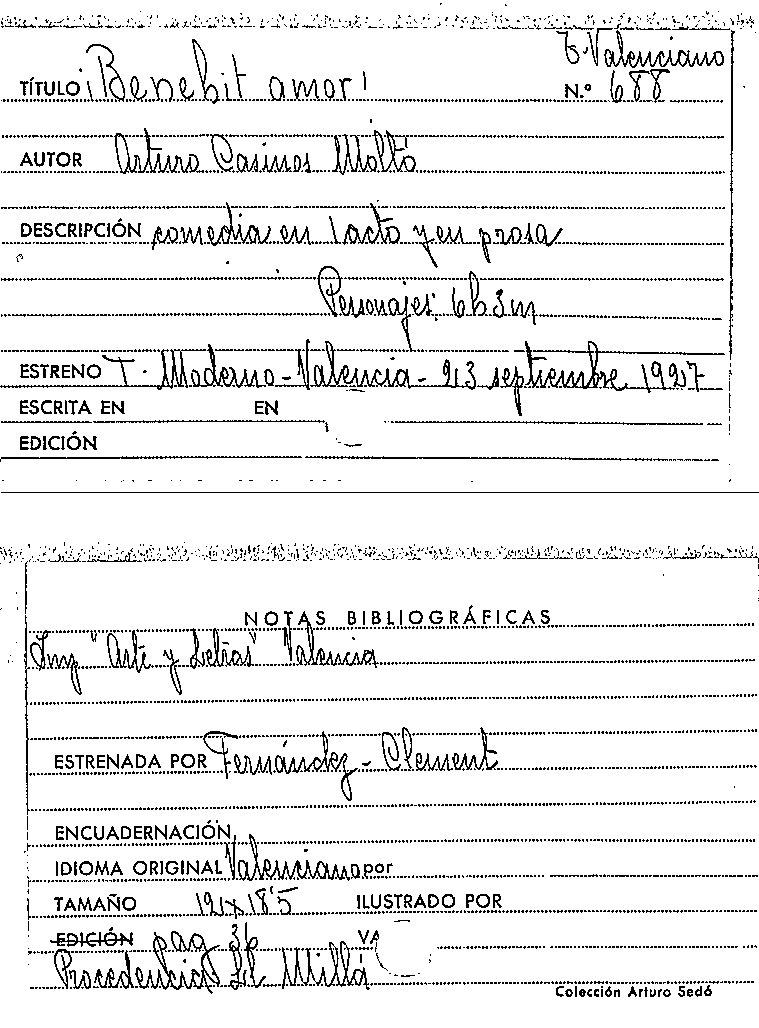 T. Valenciano
TÍTULO ¡Benehit amor! N.º 688
AUTOR Arturo Casinos Moltó
DESCRIPCIÓN comedia en 1 acto y en prosa
Personajes: 6h 3m
ESTRENO T. Moderno - Valencia - 23 septiembre 1927
ESCRITA EN EN
EDICIÓN
NOTAS BIBLIOGRÁFICAS
Imp "Arte y Letras" Valencia
ESTRENADA POR Fernández - Clement
ENCUADERNACIÓN
IDIOMA ORIGINAL Valenciano por
TAMAÑO 12 x 18'5 ILUSTRADO POR
EDICIÓN pag 36 VA
Procedencia Lib. Millá
Colección Arturo Sedó